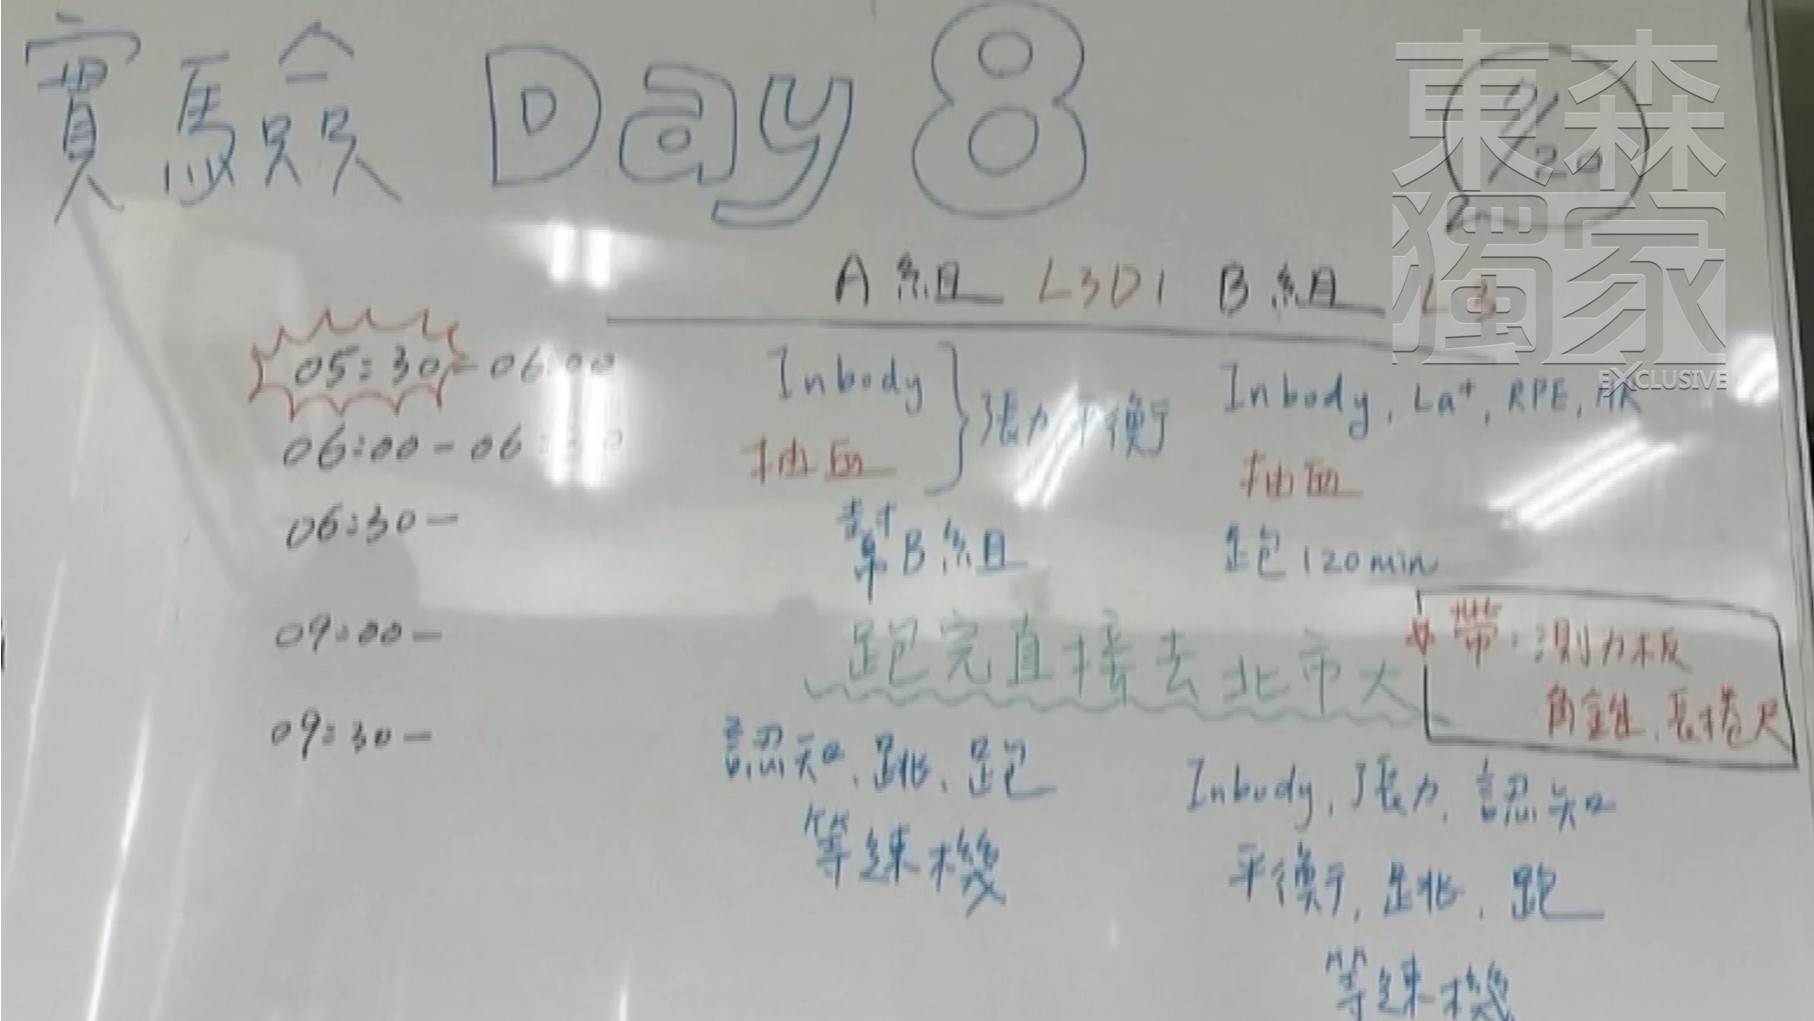 實驗 Day 8
東森
獨家
EXCLUSIVE
A組 L3D1 B組 L3
05:30-06:00 Inbody 張力平衡 Inbody, La+, RPE, HR
06:00-06:30 抽血 抽血
06:30- 幫B組 跑120min
09:00- 跑完直接去北市大
帶:測力板
角錐、長捲尺
09:30- 認知、跳、跑 Inbody, 張力, 認知
等速機 平衡, 跳, 跑
等速機